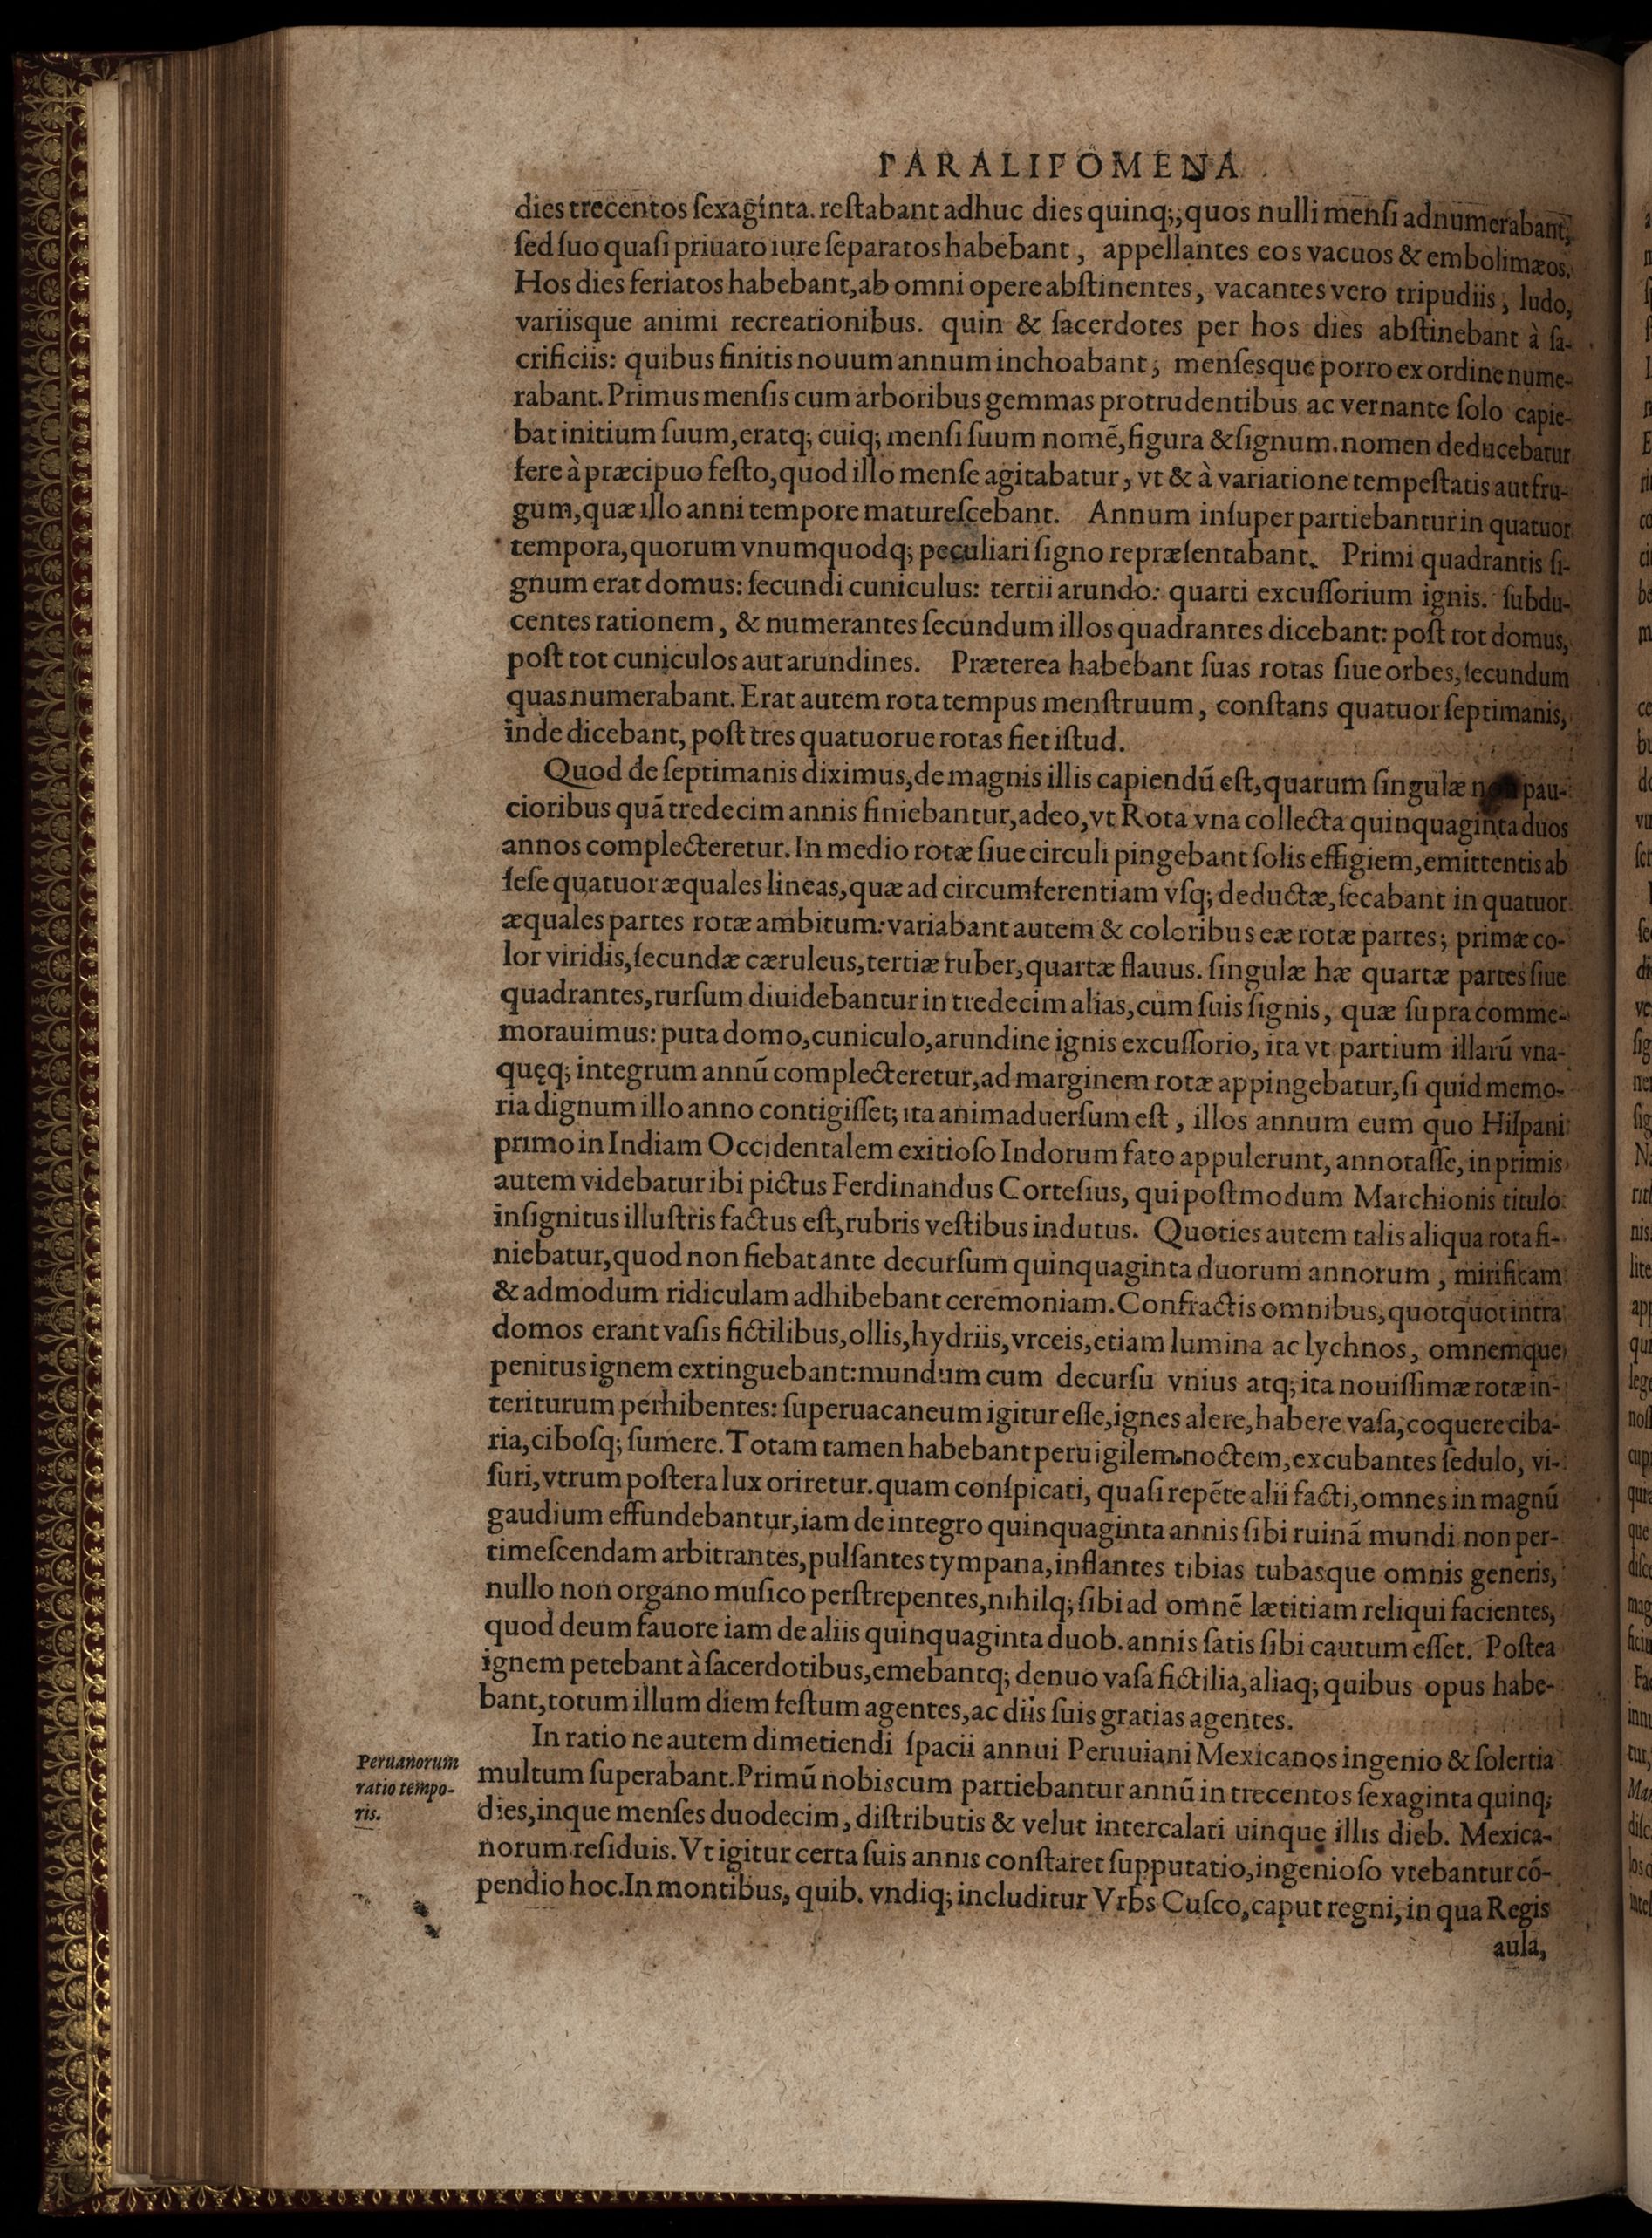 PARALIPOMENA
dies trecentos ſexaginta. reſtabant adhuc dies quinq;, quos nulli menſi adnumerabant,
ſed ſuo quaſi priuato iure ſeparatos habebant, appellantes eos vacuos & embolimæos.
Hos dies feriatos habebant, ab omni opere abſtinentes, vacantes vero tripudiis, ludo,
variisque animi recreationibus. quin & ſacerdotes per hos dies abſtinebant à ſa-
crificiis: quibus finitis nouum annum inchoabant, menſesque porro ex ordine nume-
rabant. Primus menſis cum arboribus gemmas protrudentibus ac vernante ſolo capie-
bat initium ſuum, eratq; cuiq; menſi ſuum nomẽ, figura & ſignum. nomen deducebatur
fere à præcipuo feſto, quod illo menſe agitabatur, vt & à variatione tempeſtatis aut fru-
gum, quæ illo anni tempore matureſcebant. Annum inſuper partiebantur in quatuor
tempora, quorum vnumquodq; peculiari ſigno repræſentabant. Primi quadrantis ſi-
gnum erat domus: ſecundi cuniculus: tertii arundo: quarti excuſſorium ignis. ſubdu-
centes rationem, & numerantes ſecundum illos quadrantes dicebant: poſt tot domus,
poſt tot cuniculos aut arundines. Præterea habebant ſuas rotas ſiue orbes, ſecundum
quas numerabant. Erat autem rota tempus menſtruum, conſtans quatuor ſeptimanis,
inde dicebant, poſt tres quatuorue rotas fiet iſtud.
Quod de ſeptimanis diximus, de magnis illis capiendũ eſt, quarum ſingulæ pau-
cioribus quã tredecim annis finiebantur, adeo, vt Rota vna collecta quinquaginta duos
annos complecteretur. In medio rotæ ſiue circuli pingebant ſolis effigiem, emittentis ab
ſeſe quatuor æquales lineas, quæ ad circumferentiam vſq; deductæ, ſecabant in quatuor
æquales partes rotæ ambitum: variabant autem & coloribus eæ rotæ partes; primæ co-
lor viridis, ſecundæ cæruleus, tertiæ ruber, quartæ flauus. ſingulæ hæ quartæ partes ſiue
quadrantes, rurſum diuidebantur in tredecim alias, cum ſuis ſignis, quæ ſupra comme-
morauimus: puta domo, cuniculo, arundine ignis excuſſorio, ita vt partium illarũ vna-
quęq; integrum annũ complecteretur, ad marginem rotæ appingebatur, ſi quid memo-
ria dignum illo anno contigiſſet; ita animaduerſum eſt, illos annum eum quo Hiſpani
primo in Indiam Occidentalem exitioſo Indorum fato appulerunt, annotaſſe, in primis
autem videbatur ibi pictus Ferdinandus Corteſius, qui poſtmodum Marchionis titulo
inſignitus illuſtris factus eſt, rubris veſtibus indutus. Quoties autem talis aliqua rota fi-
niebatur, quod non fiebat ante decurſum quinquaginta duorum annorum, mirificam
& admodum ridiculam adhibebant ceremoniam. Confractis omnibus, quotquot intra
domos erant vaſis fictilibus, ollis, hydriis, vrceis, etiam lumina ac lychnos, omnemque
penitus ignem extinguebant: mundum cum decurſu vnius atq; ita nouiſſimæ rotæ in-
teriturum perhibentes: ſuperuacaneum igitur eſſe, ignes alere, habere vaſa, coquere ciba-
ria, ciboſq; ſumere. Totam tamen habebant peruigilem noctem, excubantes ſedulo, vi-
ſuri, vtrum poſtera lux oriretur. quam conſpicati, quaſi repẽte alii facti, omnes in magnũ
gaudium effundebantur, iam de integro quinquaginta annis ſibi ruinã mundi non per-
timeſcendam arbitrantes, pulſantes tympana, inflantes tibias tubasque omnis generis,
nullo non organo muſico perſtrepentes, nihilq; ſibi ad omnẽ lætitiam reliqui facientes,
quod deum fauore iam de aliis quinquaginta duob. annis ſatis ſibi cautum eſſet. Poſtea
ignem petebant à ſacerdotibus, emebantq; denuo vaſa fictilia, aliaq; quibus opus habe-
bant, totum illum diem feſtum agentes, ac diis ſuis gratias agentes.
In ratio ne autem dimetiendi ſpacii annui Peruuiani Mexicanos ingenio & ſolertia
Peruanorum
ratio tempo-
ris.
multum ſuperabant. Primũ nobiscum partiebantur annũ in trecentos ſexaginta quinq;
dies, inque menſes duodecim, diſtributis & velut intercalati uinque illis dieb. Mexica-
norum reſiduis. Vt igitur certa ſuis annis conſtaret ſupputatio, ingenioſo vtebantur cõ-
pendio hoc. In montibus, quib. vndiq; includitur Vrbs Cuſco, caput regni, in qua Regis
aula,